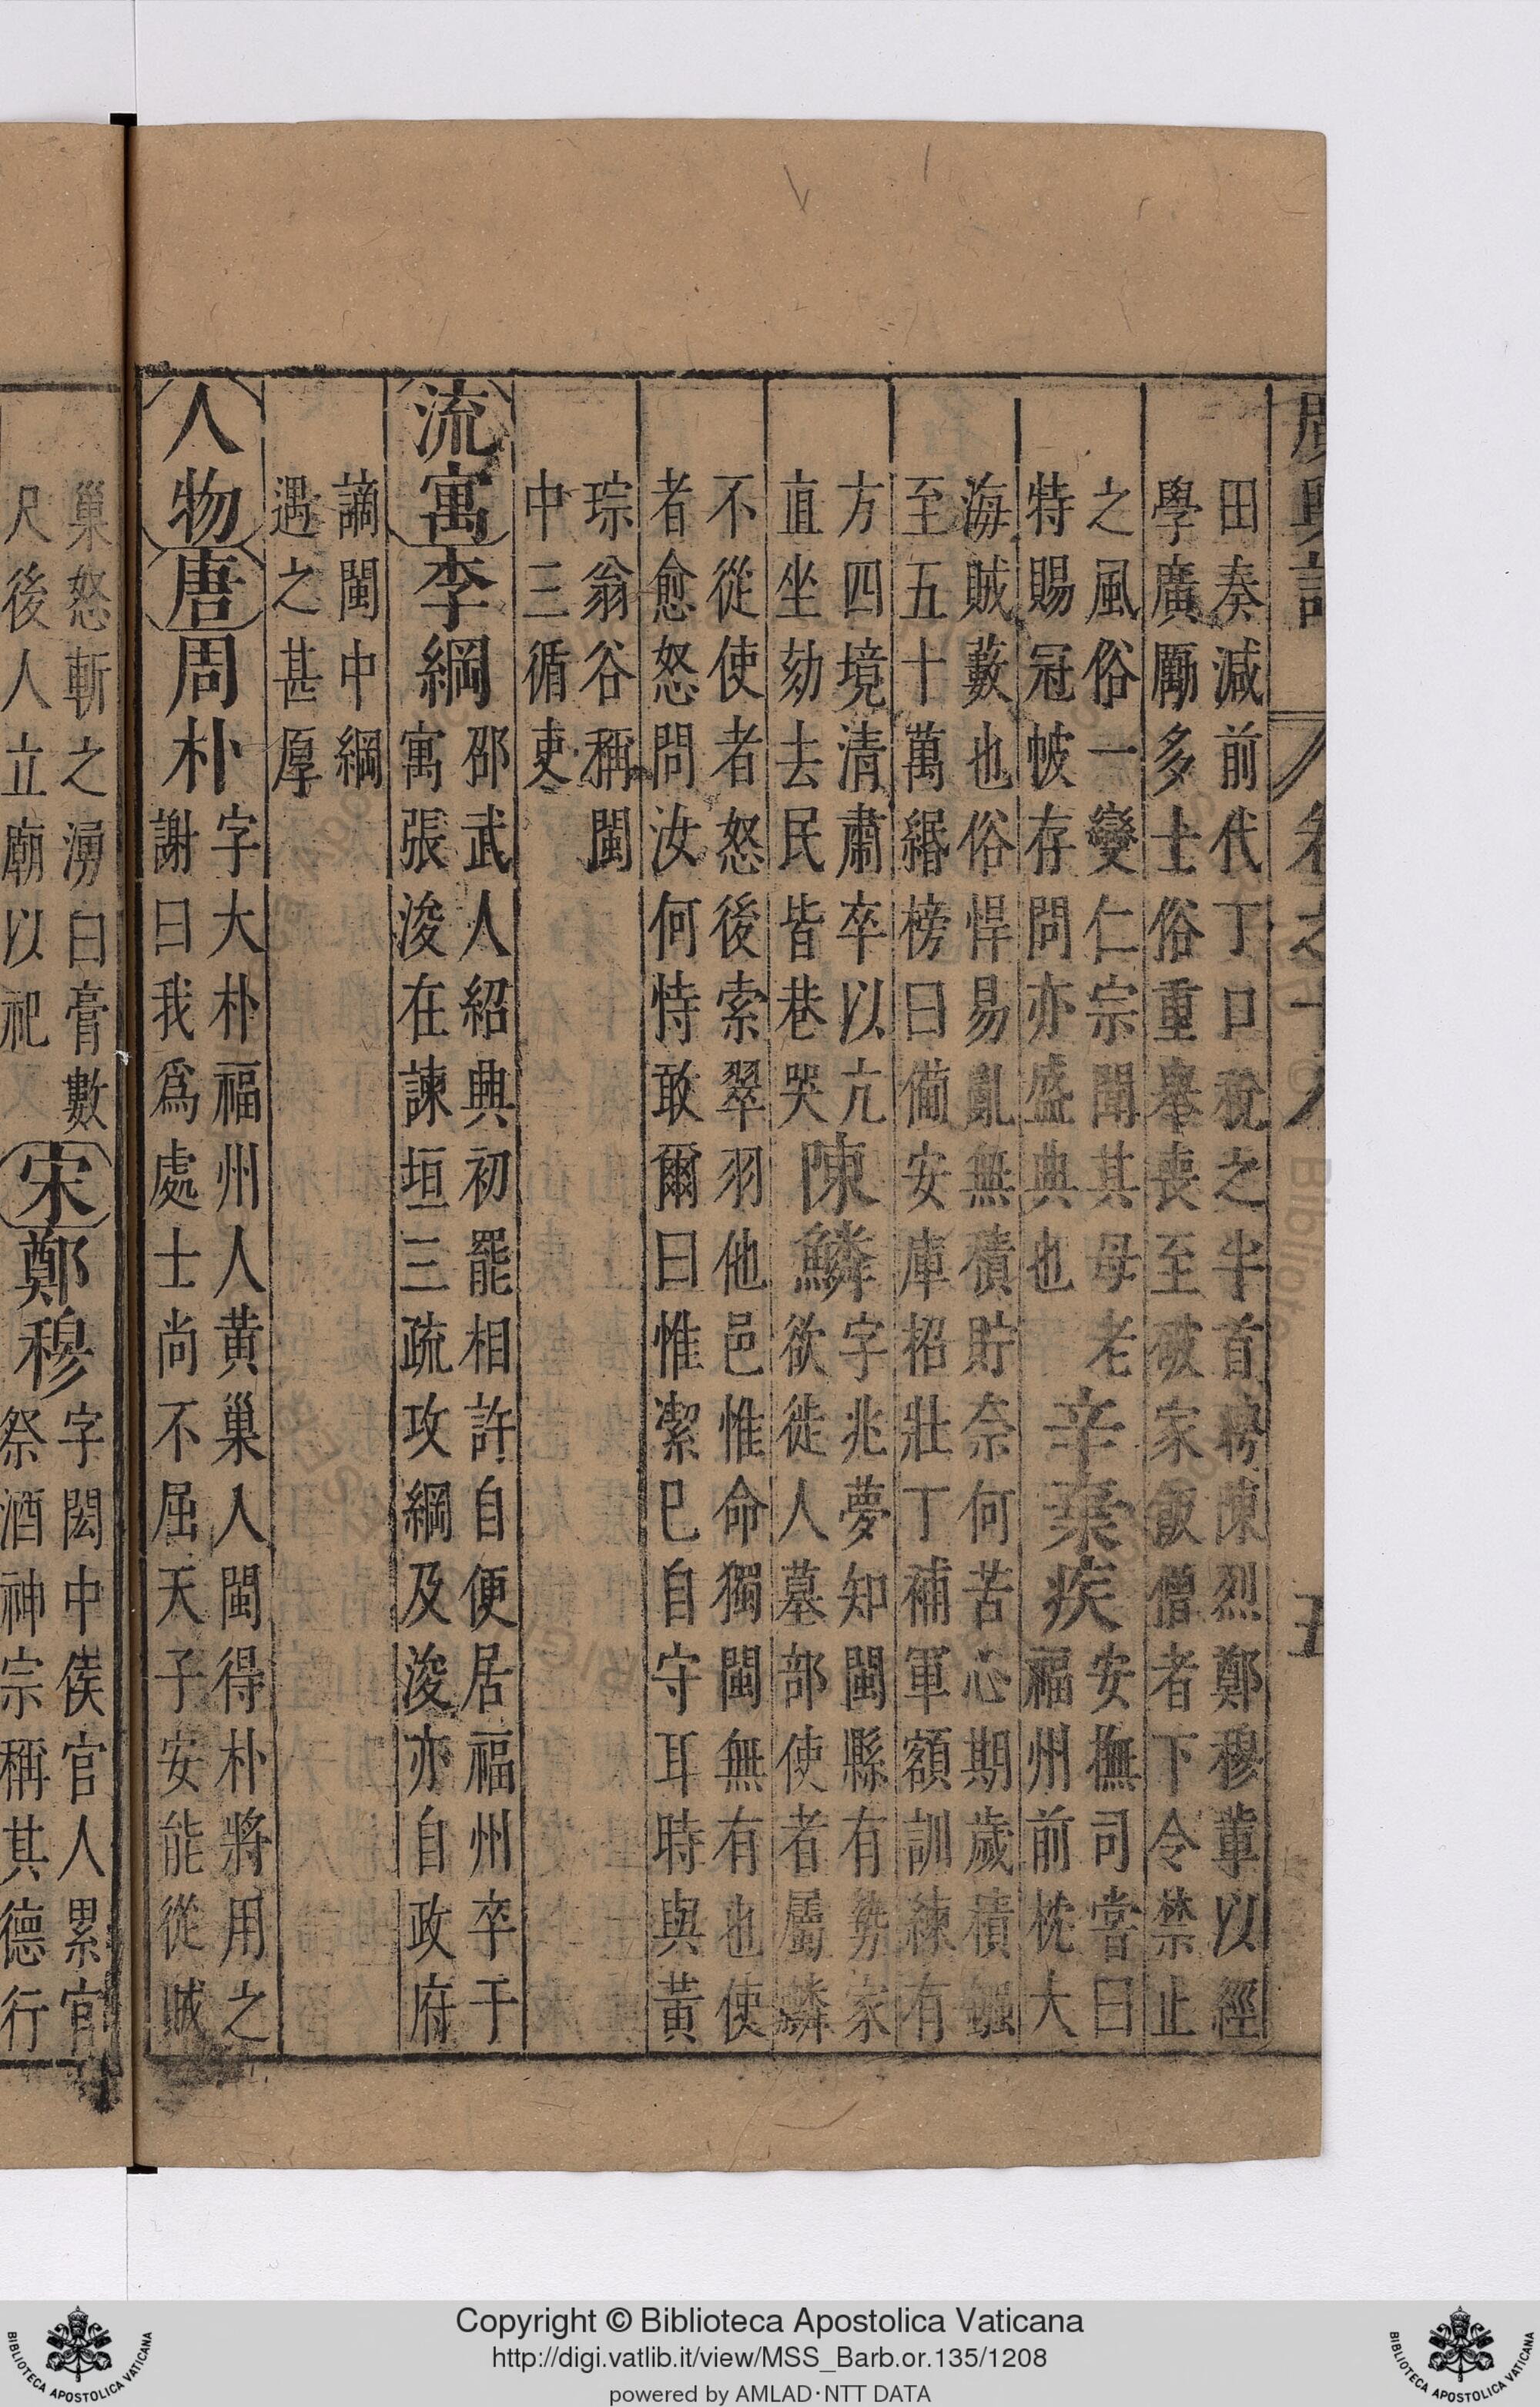 廣輿記 卷之十八 五
田奏減前代丁口稅之半首聘陳烈鄭穆輩以經
學廣勵多士俗重舉喪至破家飯僧者下令禁止
之風俗一變仁宗聞其母老
特賜冠帔存問亦盛典也
辛棄疾
安撫司嘗曰
福州前枕大
海賊藪也俗悍易亂無積貯奈何苦心期歲積鏹
至五十萬緡榜曰備安庫招壯丁補軍額訓練有
方四境清肅卒以亢
直坐劾去民皆巷哭
陳鱗
字兆夢知閩縣有勢家
欲徙人墓部使者屬鱗
不從使者怒後索翠羽他邑惟命獨閩無有也使
者愈怒問汝何恃敢爾曰惟潔巳自守耳時與黃
琮翁谷稱閩
中三循吏
流寓李綱
邵武人紹興初罷相許自便居福州卒于
寓張浚在諫垣三疏攻綱及浚亦自政府
謫閩中綱
遇之甚厚
人物唐周朴
字大朴福州人黃巢入閩得朴將用之
謝曰我爲處士尚不屈天子安能從賊
巢怒斬之湧白膏數
尺後人立廟以祀
宋鄭穆
字閎中侯官人累官
祭酒神宗稱其德行
Copyright © Biblioteca Apostolica Vaticana
http://digi.vatlib.it/view/MSS_Barb.or.135/1208
powered by AMLAD·NTT DATA
BIBLIOTECA APOSTOLICA VATICANA
BIBLIOTECA APOSTOLICA VATICANA